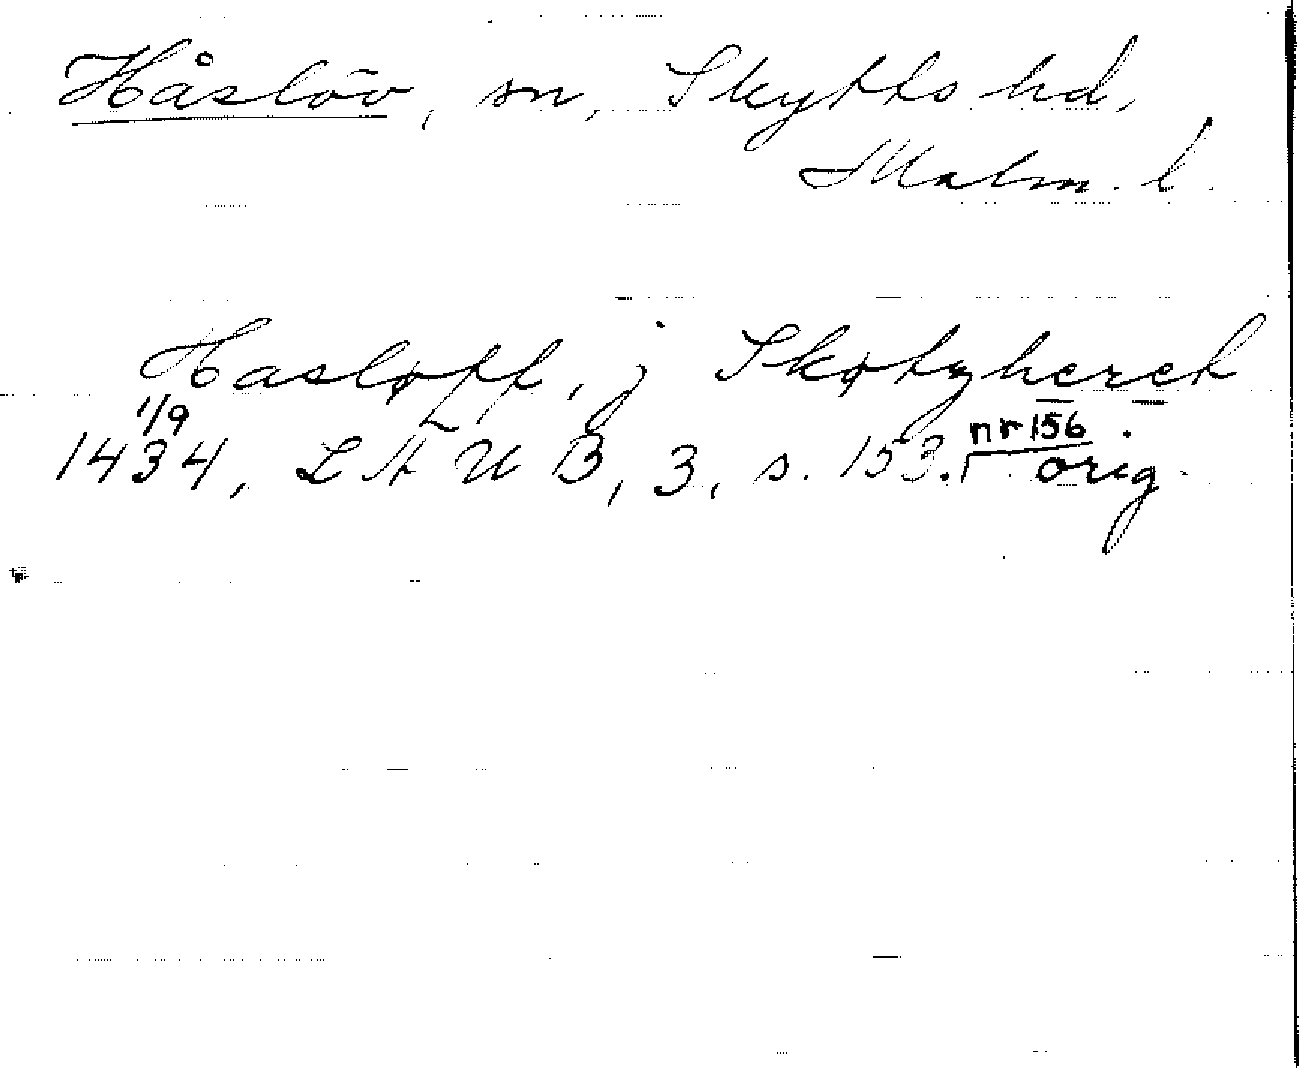 Håslöv, sn, Skytts hd,
Malm. l.
Hasløff, j Skøtzhereth
1/9
1434, LÄUB, 3, s. 153. nr 156 orig.